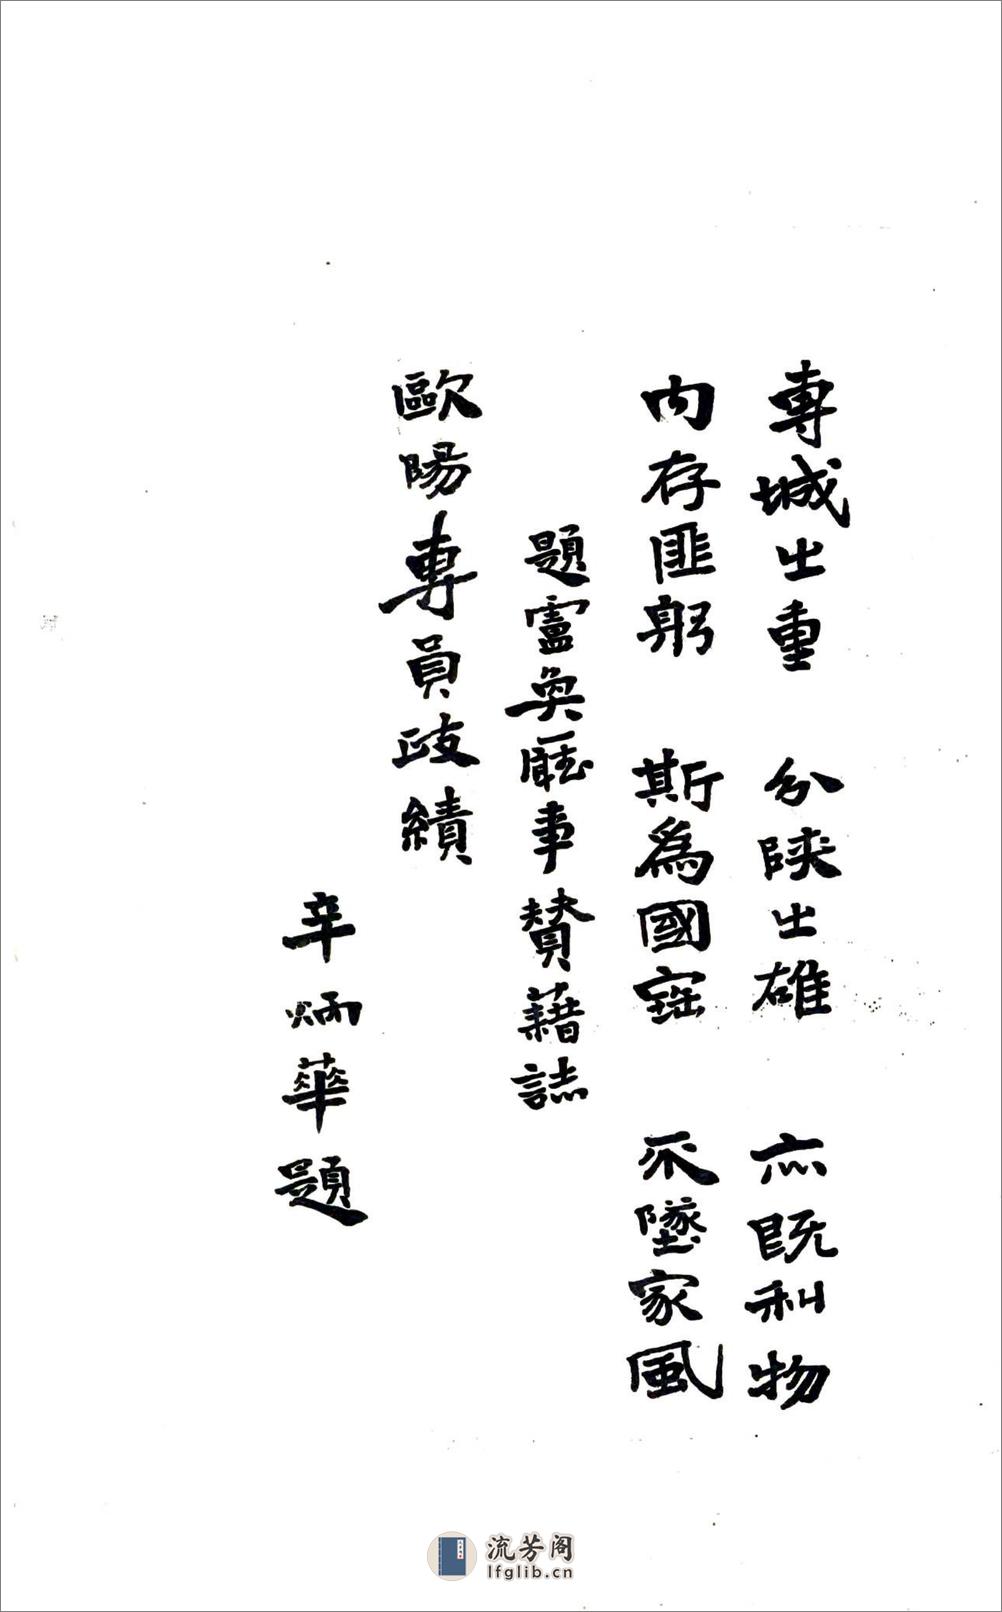 專城之重 分陝之雄 亦既利物
內存匪躬 斯為國寶 不墜家風
題盧奐廳事贊藉誌
歐陽專員政績
辛炳華題
流芳阁
lfglib.cn